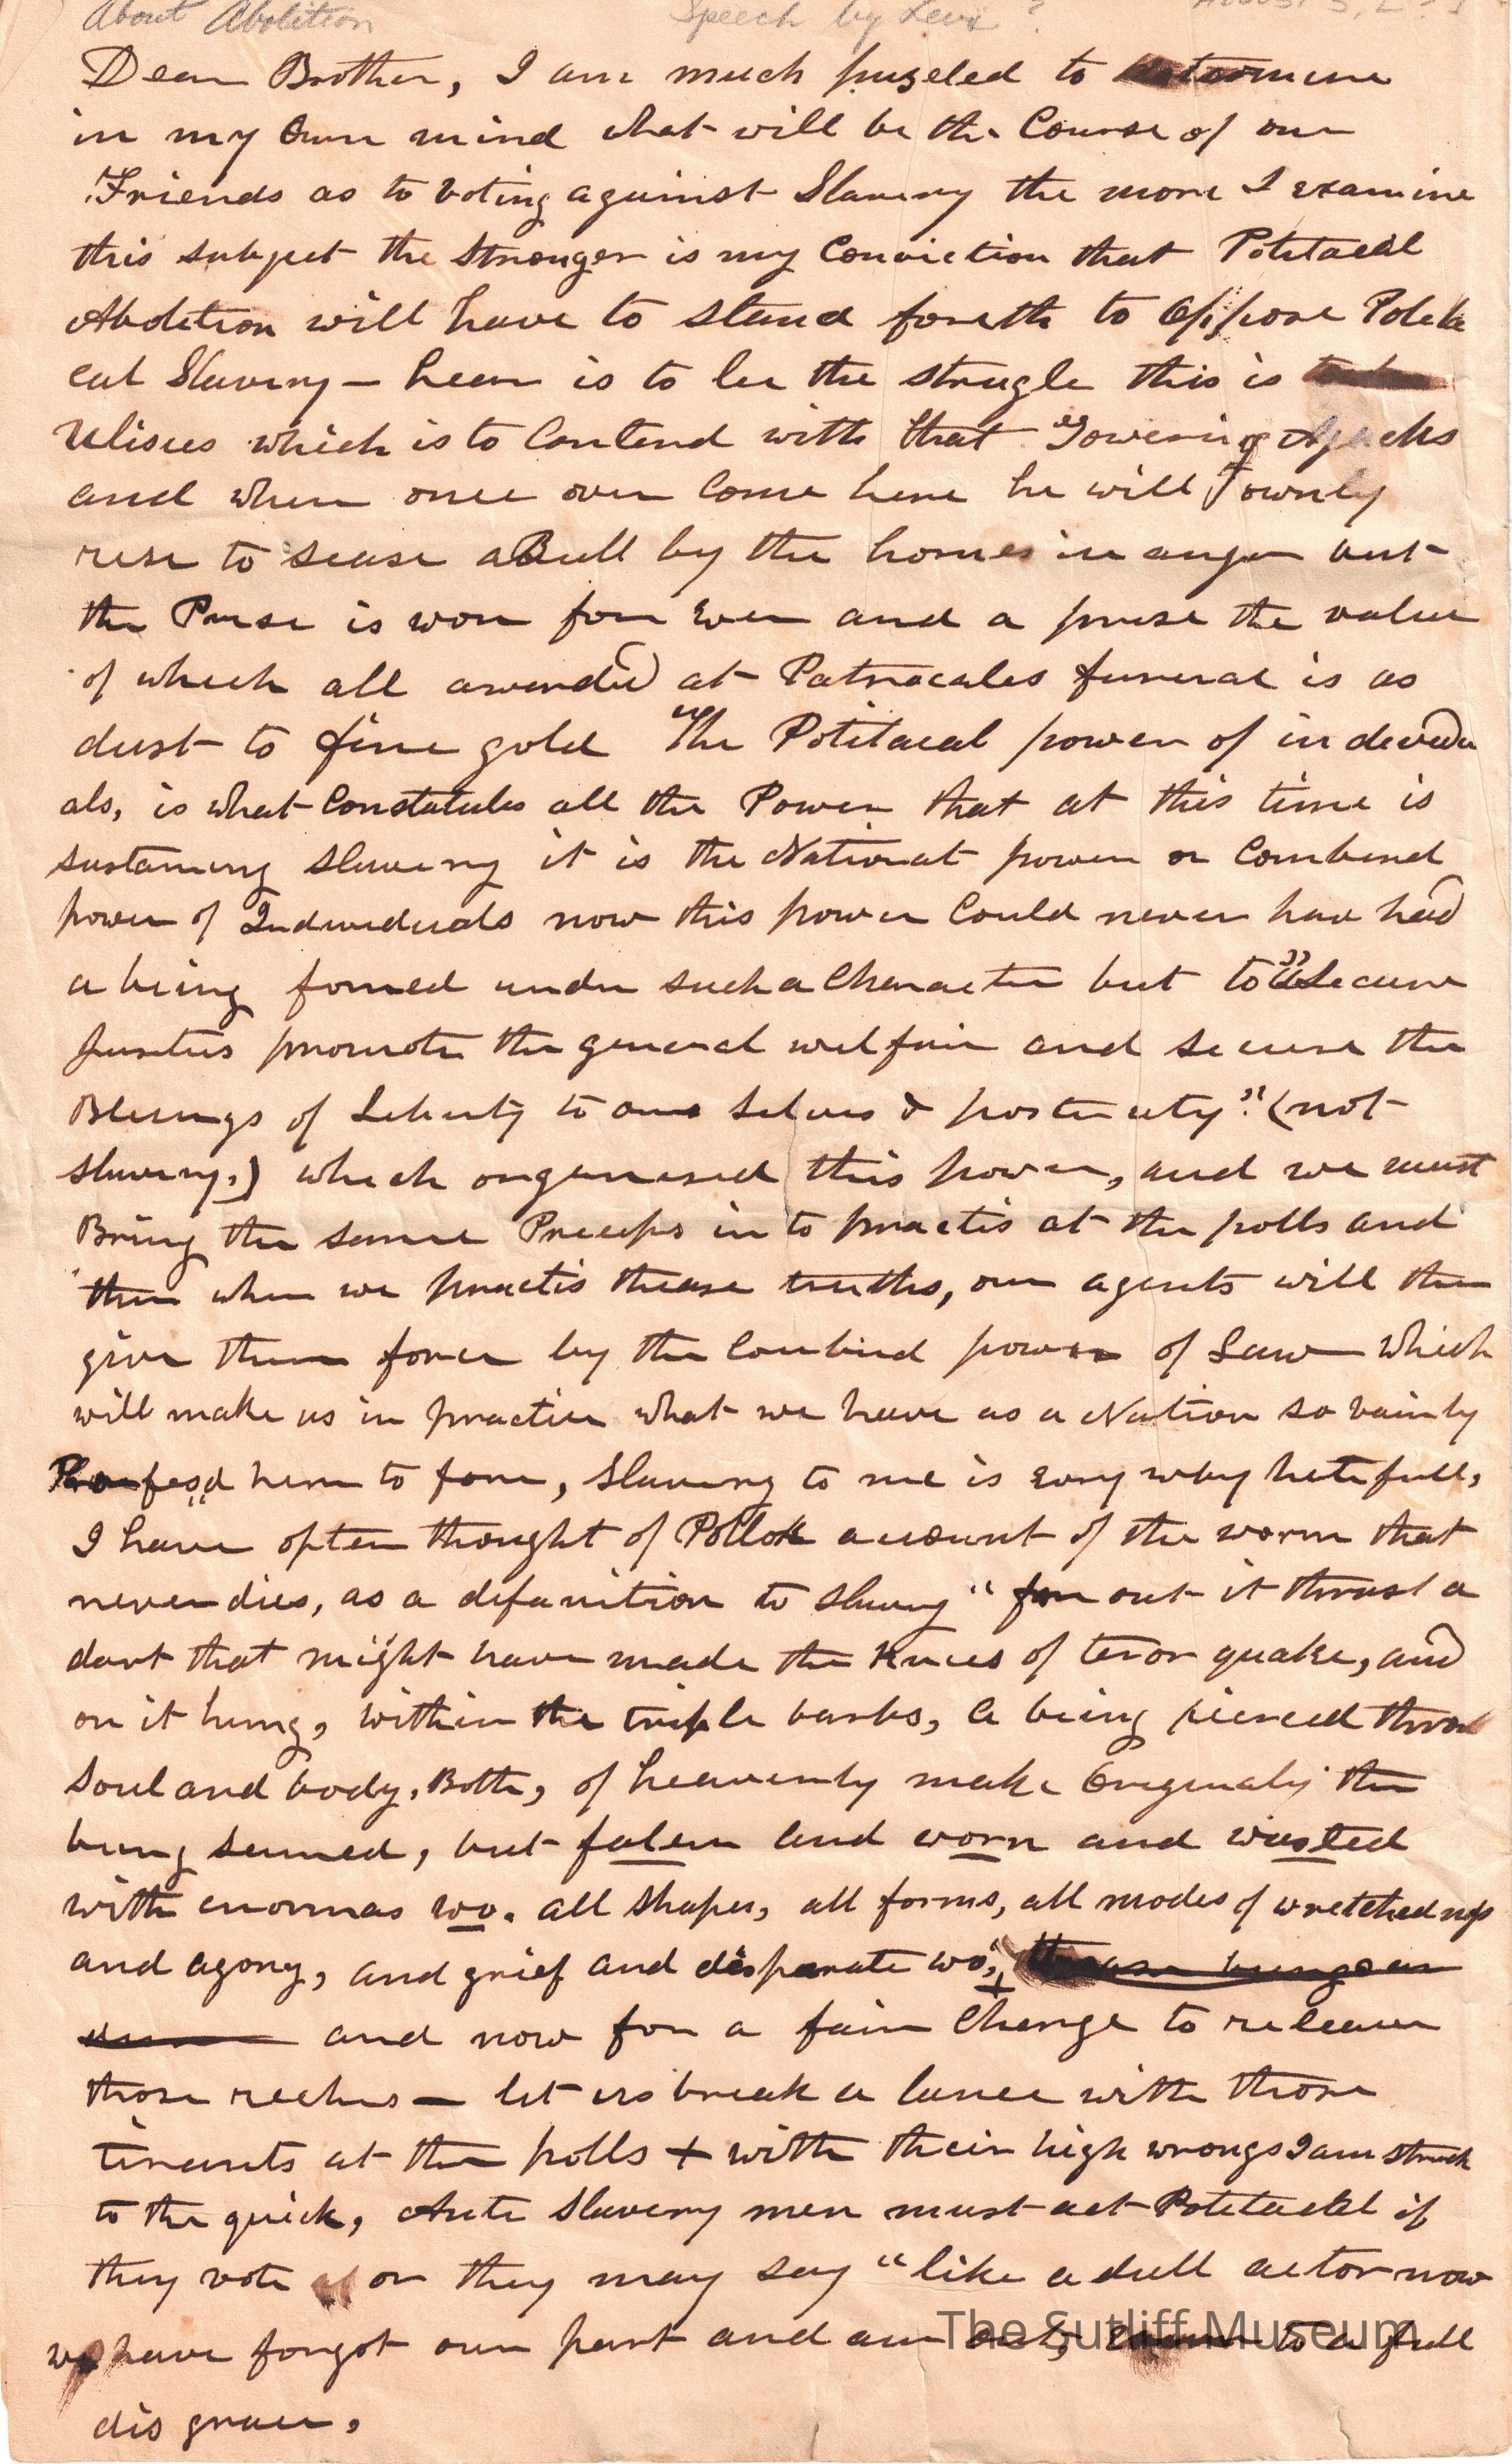 About Abolition Speech by Levi ?
Dear Brother, I am much puzeled to determine
in my own mind what will be the Course of our
Friends as to voting against Slavery the more I examine
this subject the Stronger is my Conviction that Politacal
Abolition will have to stand foreth to oppose Politi
cal Slavery — hear is to be the strugle this is
Ulisies which is to Contend with that Towering Ajacks
and when once over Come here he will ownly
rise to sease a Bull by the hornes in anger but
the Prise is won for Ever and a prise the value
of which all awarded at Patrocales funeral is as
dust to fine gold The Politacal power of indevedu
als, is what Constatutes all the Power that at this time is
sustaining slavery it is the National power or Combined
power of Individuals now this power Could never hav had
a being formed under such a Character but to "Secure
Justis promote the general welfair and secure the
Blesings of Liberty to our selves & posterity" (not
slavery,) which organised this power, and we must
Bring the same Preceps in to practis at the polls and
then when we practis thease truths, our agents will then
give them force by the Combined power of Law which
will make us in practice what we have as a Nation so vainly
Profesd here to fore, Slavery to me is evry way hatefull,
I have often thought of Pollok account of the worm that
never dies, as a defanition to slavery "for out it thrust a
dart that might have made the Knees of teror quake, and
on it hung, within the triple barbs, a being pierced throu
soul and body, Both, of heavenly make Originaly the
being seemed, but falen and worn and wasted
with enormas wo. all shapes, all forms, all modes of wretchedness
and agony, and grief and desparate wo",
and now for a fair Change to releave
those reches — let us break a lance with those
tirants at the polls + with their high wrongs I am struck
to the quick, Ante Slavery men must act Politacal if
they vote or they may say "like a dull actor now
we have forgot our part and am out, to a full
disgrace,
The Sutliff Museum